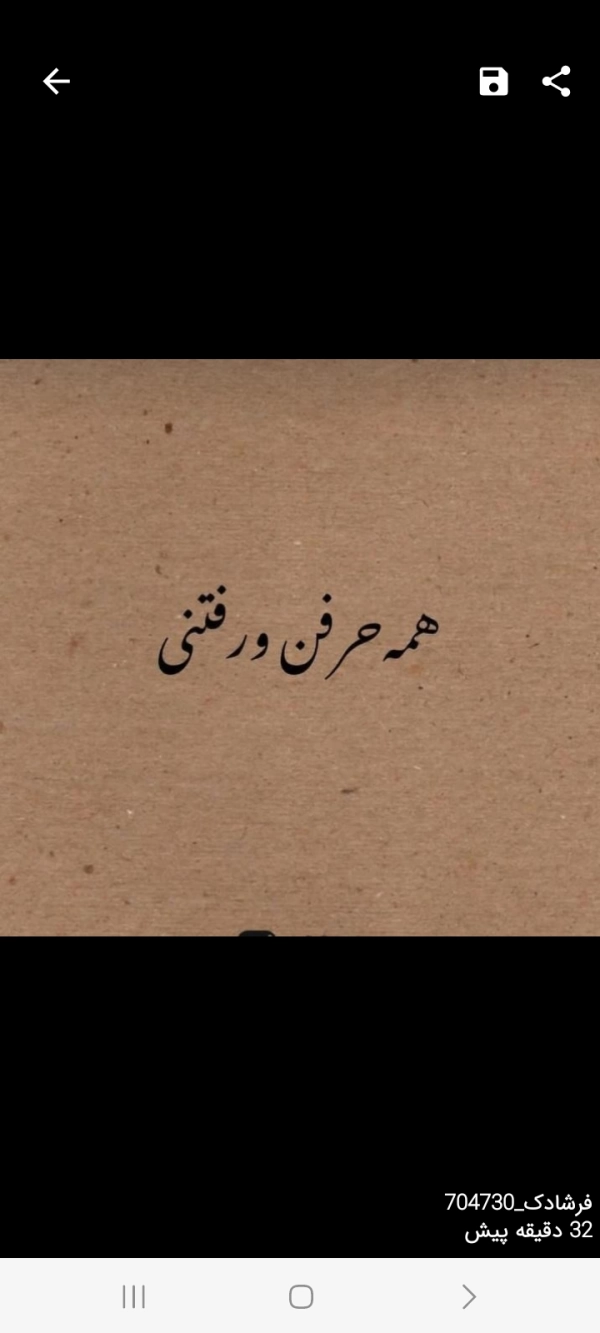 همه حرفن و رفتنی
فرشادک_704730
32 دقیقه پیش